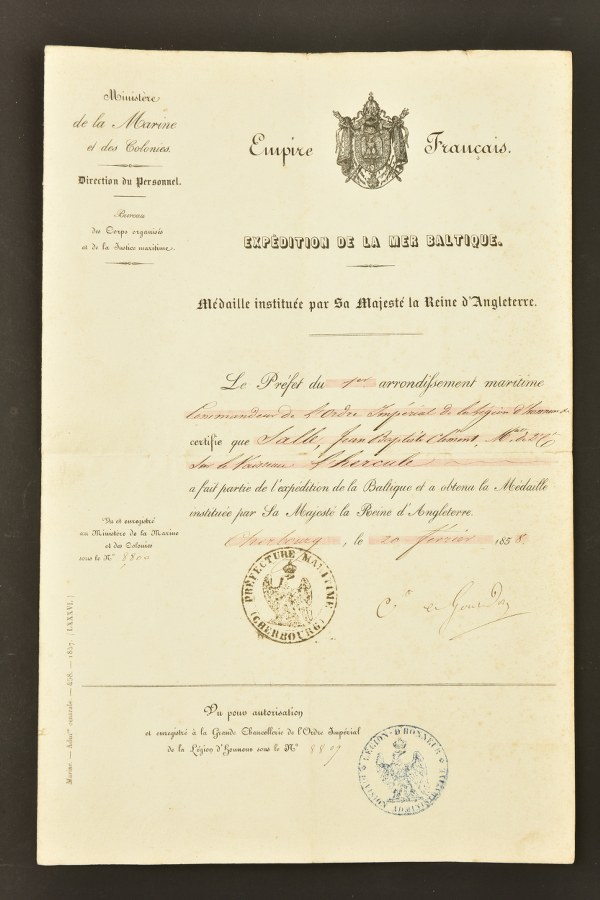 Ministère
de la Marine
et des Colonies.
Direction du Personnel.
Bureau
des Corps organisés
et de la Justice maritime.
Empire Français.
EXPÉDITION DE LA MER BALTIQUE.
Médaille instituée par Sa Majesté la Reine d'Angleterre.
Le Préfet du 1er arrondissement maritime
Commandeur de l'Ordre Impérial de la Légion d'honneur
certifie que Salle, Jean Baptiste Clément,
sur le Vaisseau l'hercule
a fait partie de l'expédition de la Baltique et a obtenu la Médaille
instituée par Sa Majesté la Reine d'Angleterre.
Cherbourg, le 20 février 1858.
Vu et enregistré
au Ministère de la Marine
et des Colonies
sous le N°
PRÉFECTURE MARITIME
(CHERBOURG)
Marine. — 838. — 1857. (LXXXVI.)
Vu pour autorisation
et enregistré à la Grande Chancellerie de l'Ordre Impérial
de la Légion d'Honneur sous le N°
LÉGION D'HONNEUR
DIVISION ADMINISTRATIVE